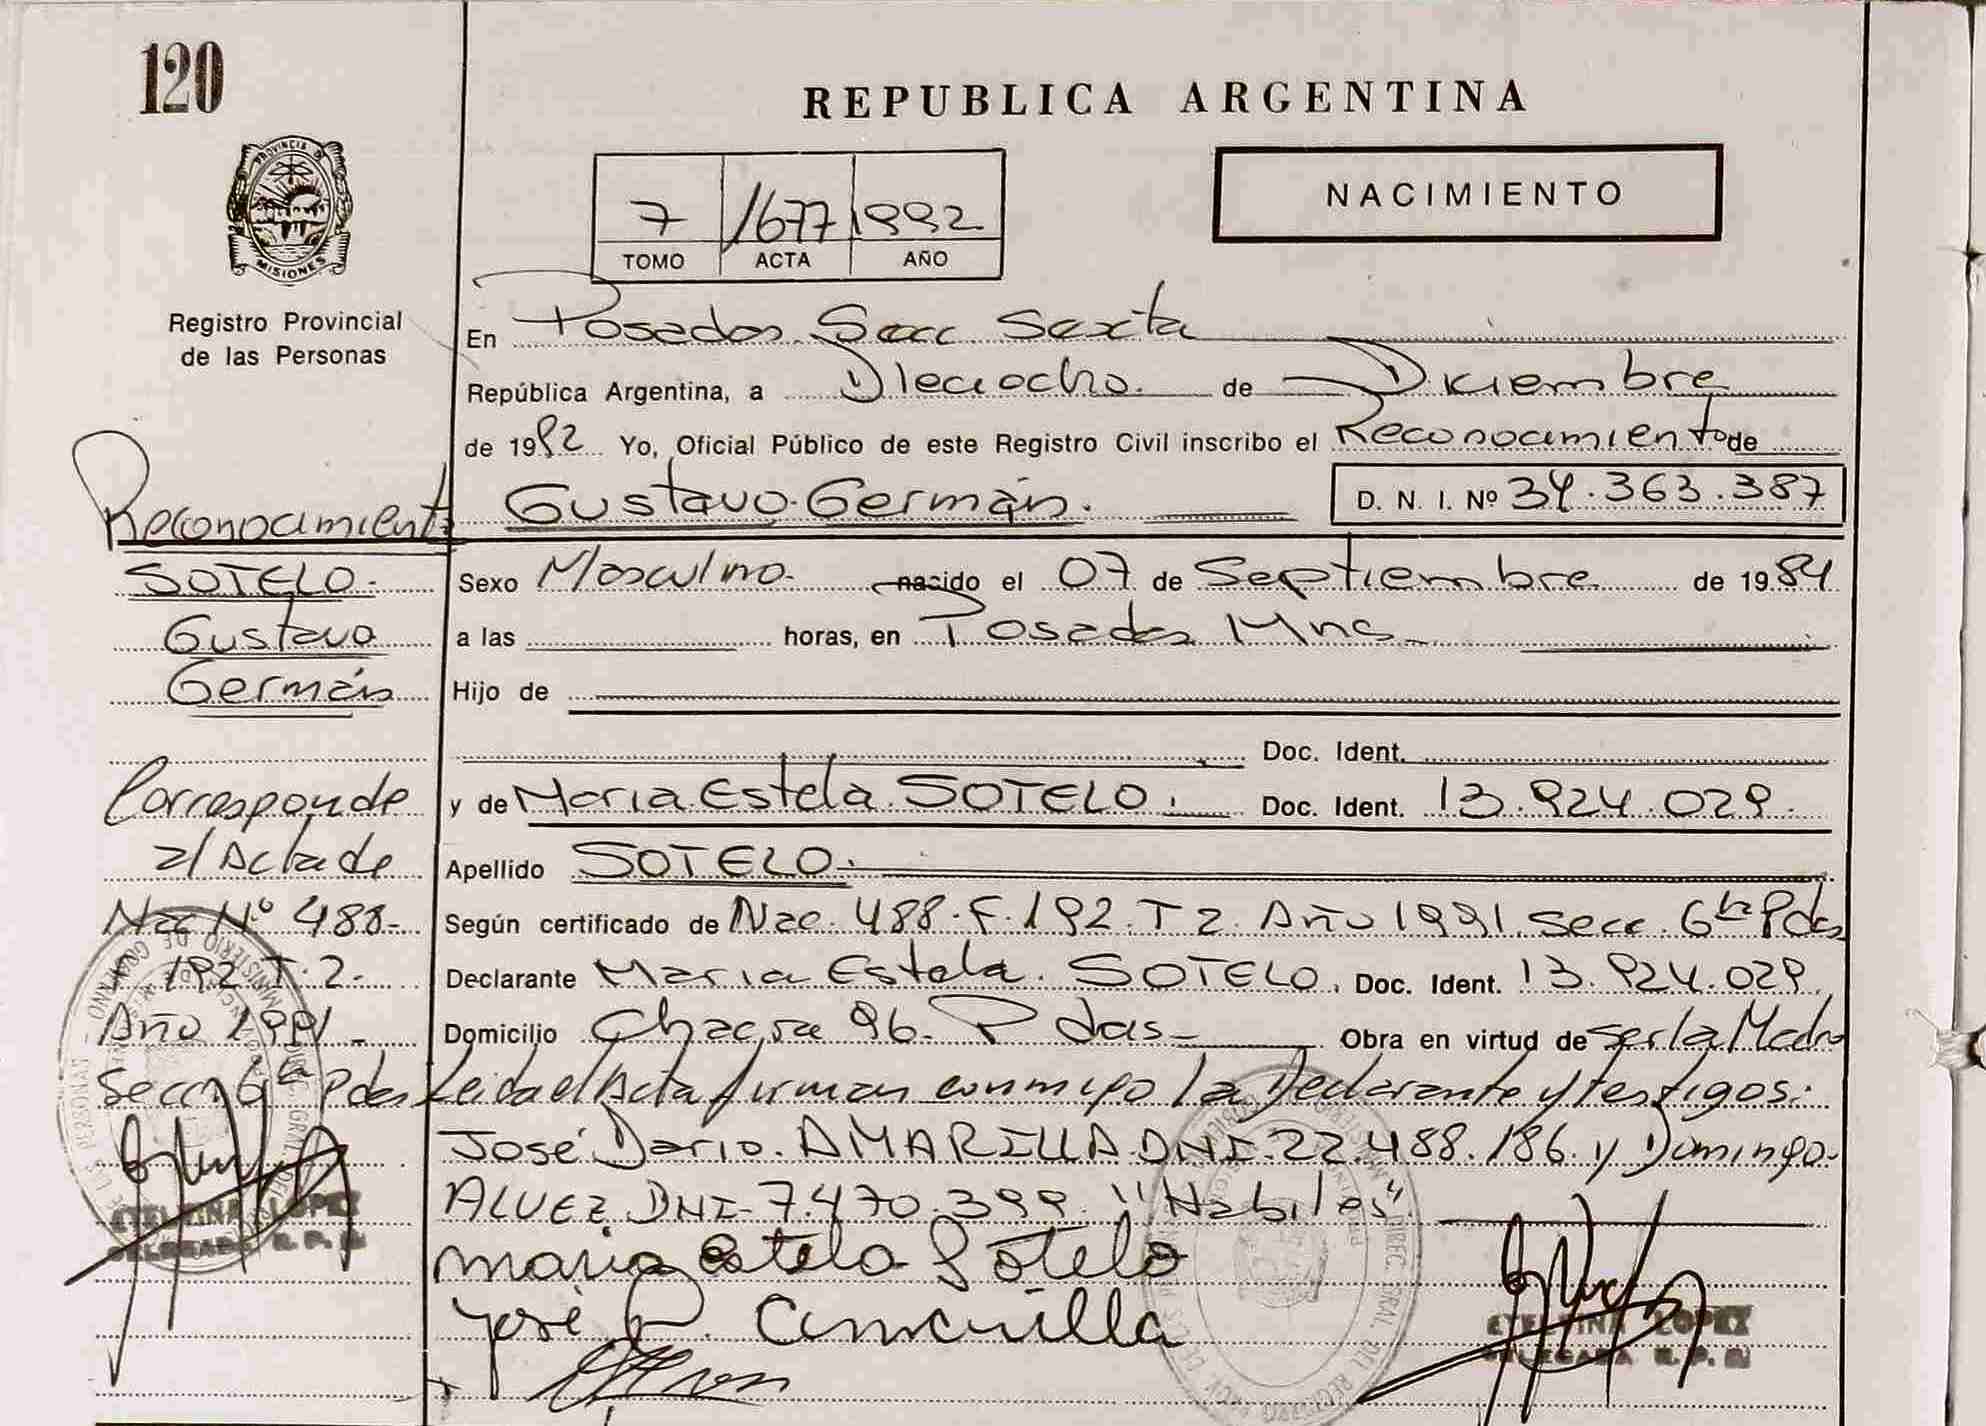 120
REPUBLICA ARGENTINA
PROVINCIA DE
MISIONES
Registro Provincial
de las Personas
7 1677 1992
TOMO ACTA AÑO
NACIMIENTO
En Posadas Secc Sexta
República Argentina, a Dieciocho de Diciembre
de 1992 Yo, Oficial Público de este Registro Civil inscribo el Reconocimiento de
Gustavo Germán. D. N. I. Nº 34.363.387
Sexo Masculino. nacido el 07 de Septiembre de 1984
a las horas, en Posadas Mnes
Hijo de
Doc. Ident.
y de Maria Estela SOTELO. Doc. Ident. 13.924.029.
Apellido SOTELO.
Según certificado de Nac. 488. F. 192. T 2. Año 1991. Secc. 6ta Pdas
Declarante Maria Estela. SOTELO. Doc. Ident. 13.924.029.
Domicilio Chacra 96. Pdas Obra en virtud de ser la Madre
Leida el Acta firman conmigo la Declarante y testigos:
José Dario. AMARILLA DNI. 22.488.186. y Domingo
ALVEZ DNI. 7.470.399. "Habiles"
Maria Estela Sotelo
José D. Amarilla
Reconocimiento
SOTELO.
Gustavo
Germán
Corresponde
al Acta de
Nac Nº 488-
F. 192. T. 2-
Año 1991-
Secc. 6ta Pdas
ETELVINA LOPEZ
DELEGADA R. P.
ETELVINA LOPEZ
DELEGADA R. P.